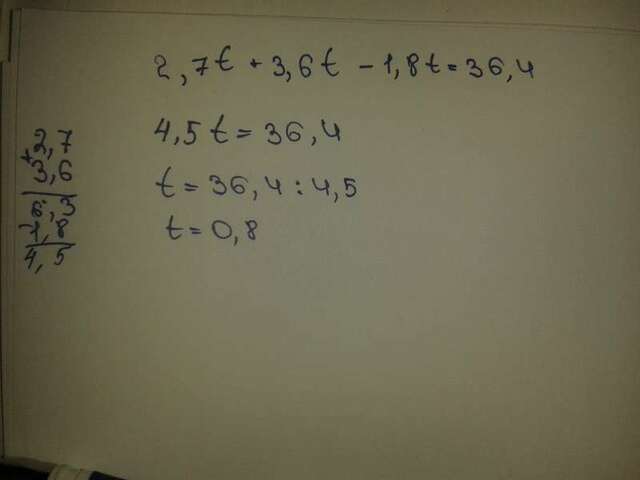 2,7t + 3,6t - 1,8t = 36,4
4,5t = 36,4
t = 36,4 : 4,5
t = 0,8
+2,7
3,6
6,3
-1,8
4,5